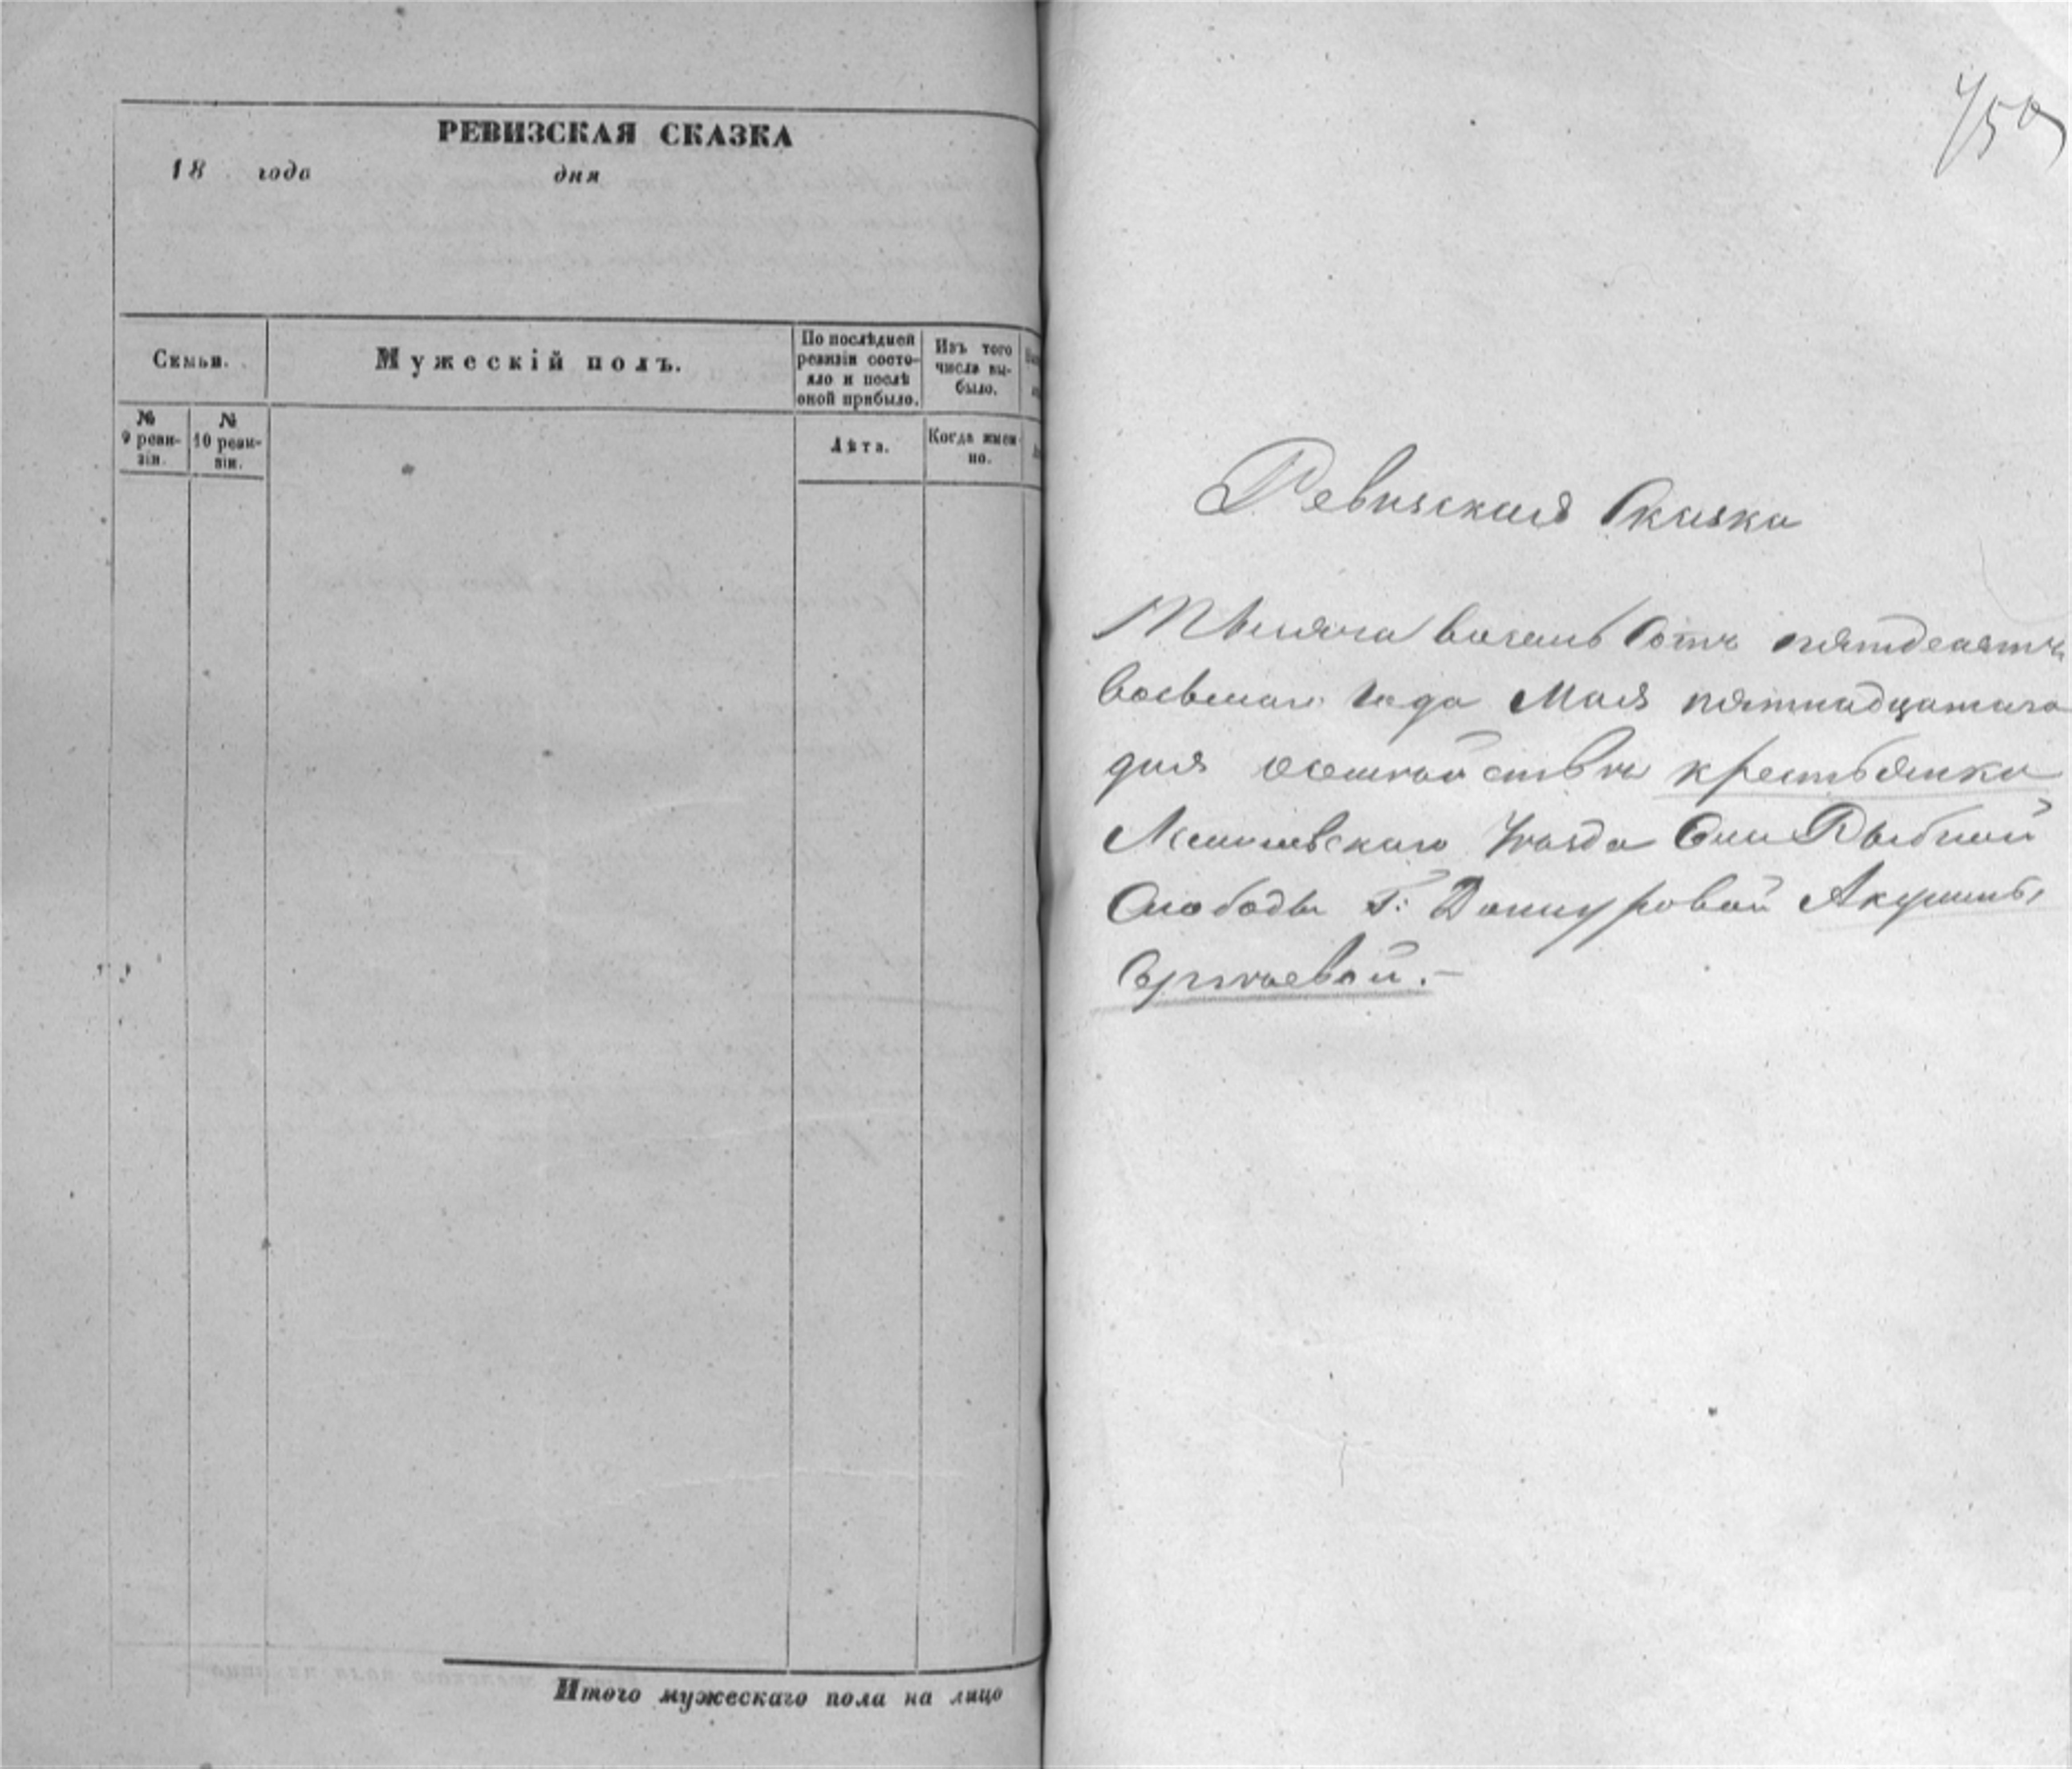 РЕВИЗСКАЯ СКАЗКА
18 года дня
Семьи.
Мужескій полъ.
По послѣдней ревизіи состояло и послѣ оной прибыло.
Изъ того числа выбыло.
№ 9 ревизіи.
№ 10 ревизіи.
Лѣта.
Когда именно.
Итого мужескаго пола на лицо
450
Ревизская Сказка
Тысяча восемь сотъ пятдесятъ
восьмаго года Мая пятнадцатаго
дня о семействѣ крестьянки
уѣзда Рыбной
Слободы Г:
Сергѣевой.–